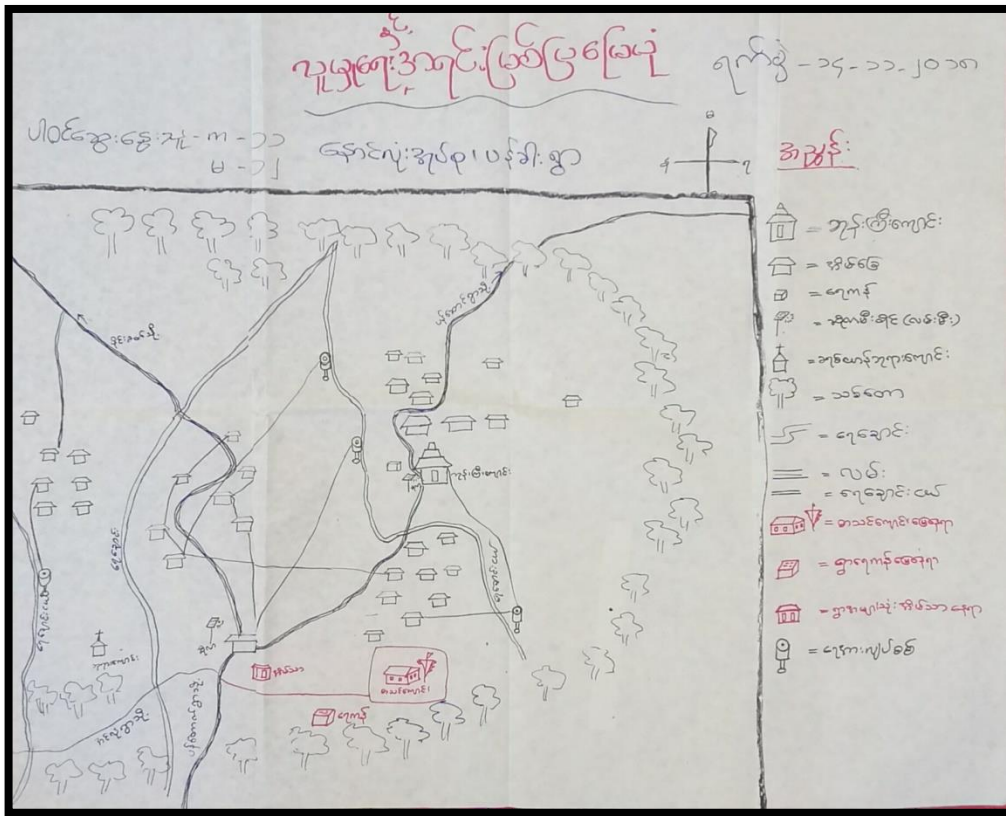 လူမှုရေးနှင့်အရင်းအမြစ်ပြမြေပုံ
ရက်စွဲ - ၁၄-၁၁-၂၀၁၈
ပါဝင်ဆွေးနွေးသူ - ကျ - ၁၁
မ - ၁၂
နောင်လုံးအုပ်စု၊ ပန်ခါးရွာ
အညွှန်း
= ဘုန်းကြီးကျောင်း
= အိမ်ခြေ
= ရေကန်
= ဆိုလာမီးတိုင် (လမ်းမီး)
= ခရစ်ယာန်ဘုရားကျောင်း
= သစ်တော
= ရေချောင်း
= လမ်း
= ရေချောင်းငယ်
= စာသင်ကျောင်းမြေနေရာ
= ရွာရေကန်မြေနေရာ
= ရွာအများသုံးအိမ်သာနေရာ
ဘုန်းကြီးကျောင်း
ရေချောင်းငယ်
ရေချောင်း
ရေချောင်းငယ်
အိမ်သာ
စာသင်ကျောင်း
ရေကန်